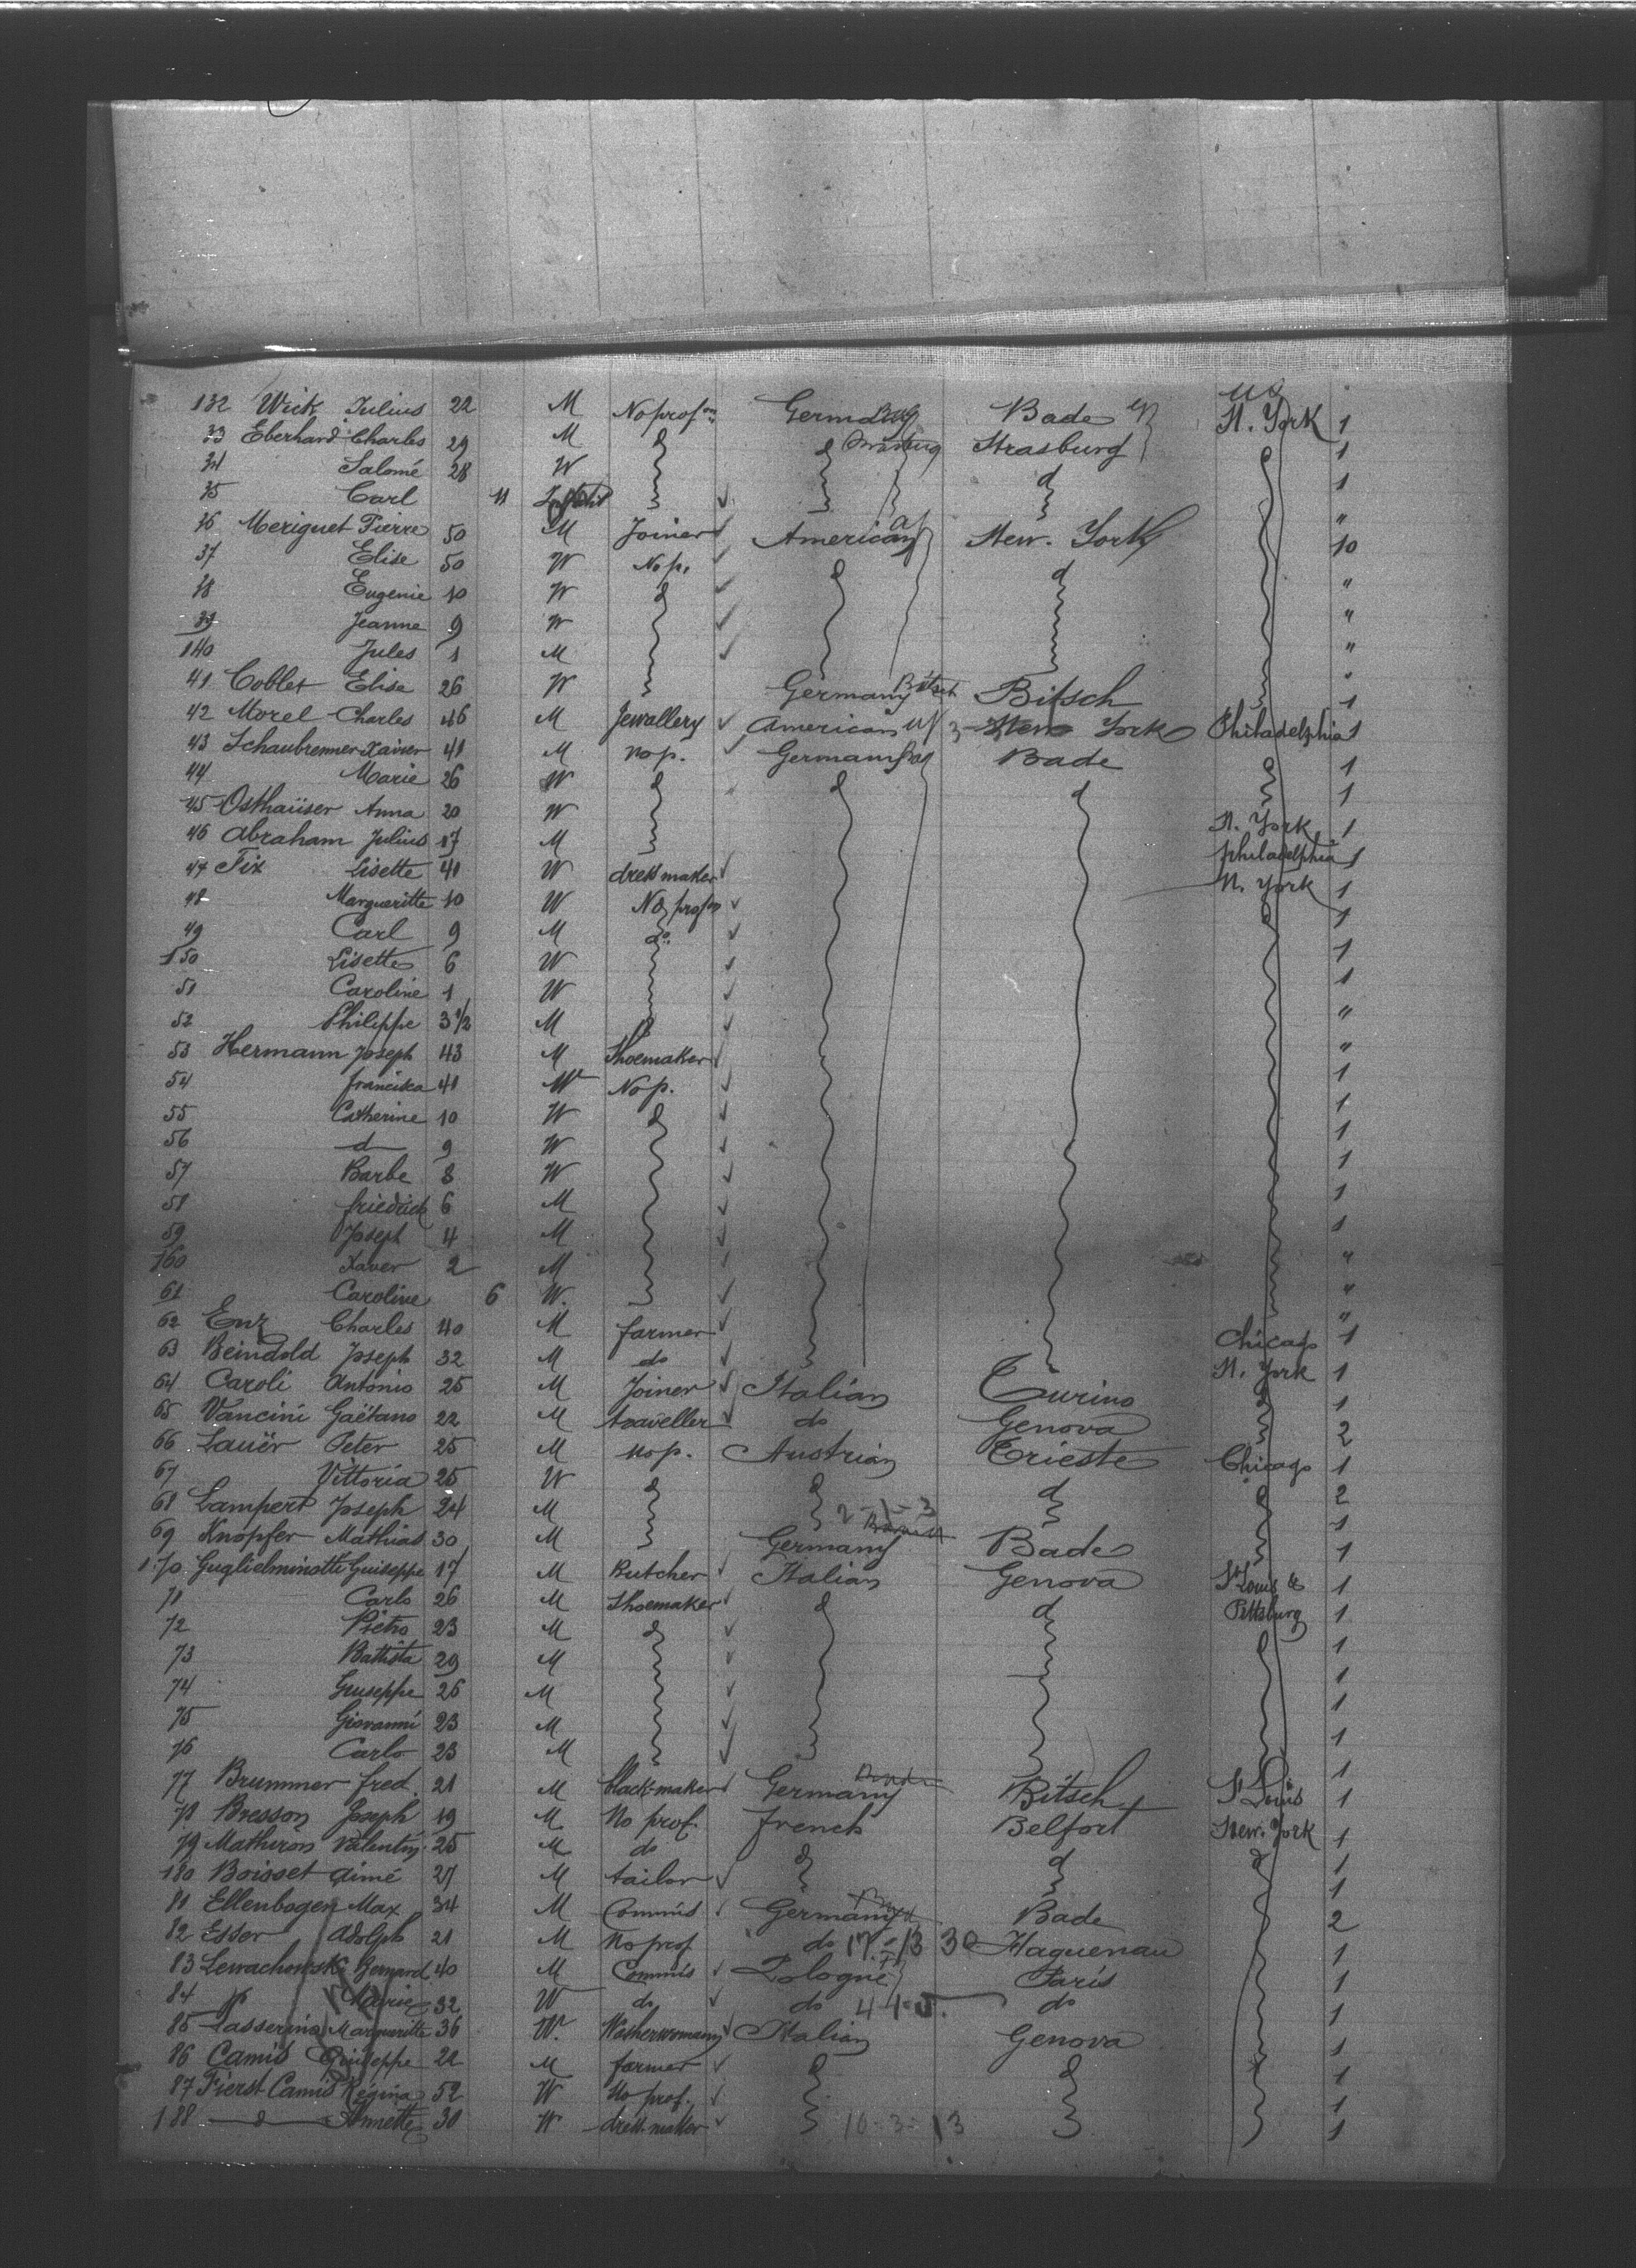 US
132 Wick Julius 22 M No profon Germany Bade N. York 1
33 Eberhard Charles 29 M d d Strasburg 1
34 Salomé 28 W d d 1
35 Carl 11 "
36 Meriguet Pierre 50 M Joiner American New-York 10
37 Elise 50 W No p. d d "
38 Eugenie 10 W d "
39 Jeanne 9 W "
140 Jules 1 M "
41 Coblet Elise 26 W Germany Bitsch 1
42 Morel Charles 46 M Jewallery American New York Philadelphia 1
43 Schaubrenner Xavier 41 M no p. Germany Bade d 1
44 Marie 26 W d d d 1
45 Osthaüser Anna 20 W N. York 1
46 Abraham Julius 17 M philadelphia 1
47 Fix Lisette 41 W dressmaker N. York 1
48 Margueritte 10 W No profon 1
49 Carl 9 M do 1
150 Lisette 6 W 1
51 Caroline 1 W "
52 Philippe 3 1/2 M "
53 Hermann Joseph 43 M Shoemaker 1
54 franciska 41 W No p. 1
55 Catherine 10 W d 1
56 d 9 W 1
57 Barbe 8 W 1
58 friedrich 6 M 1
59 Joseph 4 M "
160 Xaver 2 M "
61 Caroline 6 W. "
62 Enz Charles 40 M farmer Chicago 1
63 Beindold Joseph 32 M do N. York 1
64 Caroli Antonio 25 M Joiner Italian Turino d 1
65 Vancini Gaëtano 22 M traveller do Genova 2
66 Lauër Peter 25 M no p. Austrian Trieste Chicago 1
67 Vittoria 25 W d d d 2
68 Lampert Joseph 24 M 2-1-3 1
69 Knopfer Mathias 30 M Germany Bade 1
170 Guglielminotti Guiseppe 17 M Butcher Italian Genova St Louis & 1
71 Carlo 26 M Shoemaker d d Pittsburg 1
72 Pietro 23 M d 1
73 Battista 29 M 1
74 Guiseppe 26 M 1
75 Giovanni 23 M 1
76 Carlo 23 M 1
77 Brummer fred. 21 M Germany Bitsch St Louis 1
78 Bresson Joseph 19 M No prof. french Belfort New-York 1
79 Mathiron Valentin 25 M do d d d 1
180 Boisset Aimé 27 M tailor 1
81 Ellenbogen Max 34 M Commis Germany Bade 2
82 Esser Adolph 21 M No prof do 17-13 30 Haguenau 1
83 Lewachowski Bernard 40 M Commis Pologne Paris 1
84 Marie 32 W do do 44-5. do 1
85 Passerino Margueritte 36 W. Washerwoman Italian Genova 1
86 Camis Guiseppe 22 M farmer d d 1
87 Fierst Camis Régina 52 W No prof. 1
188 d Annette 30 W dress-maker 10-3-13 1